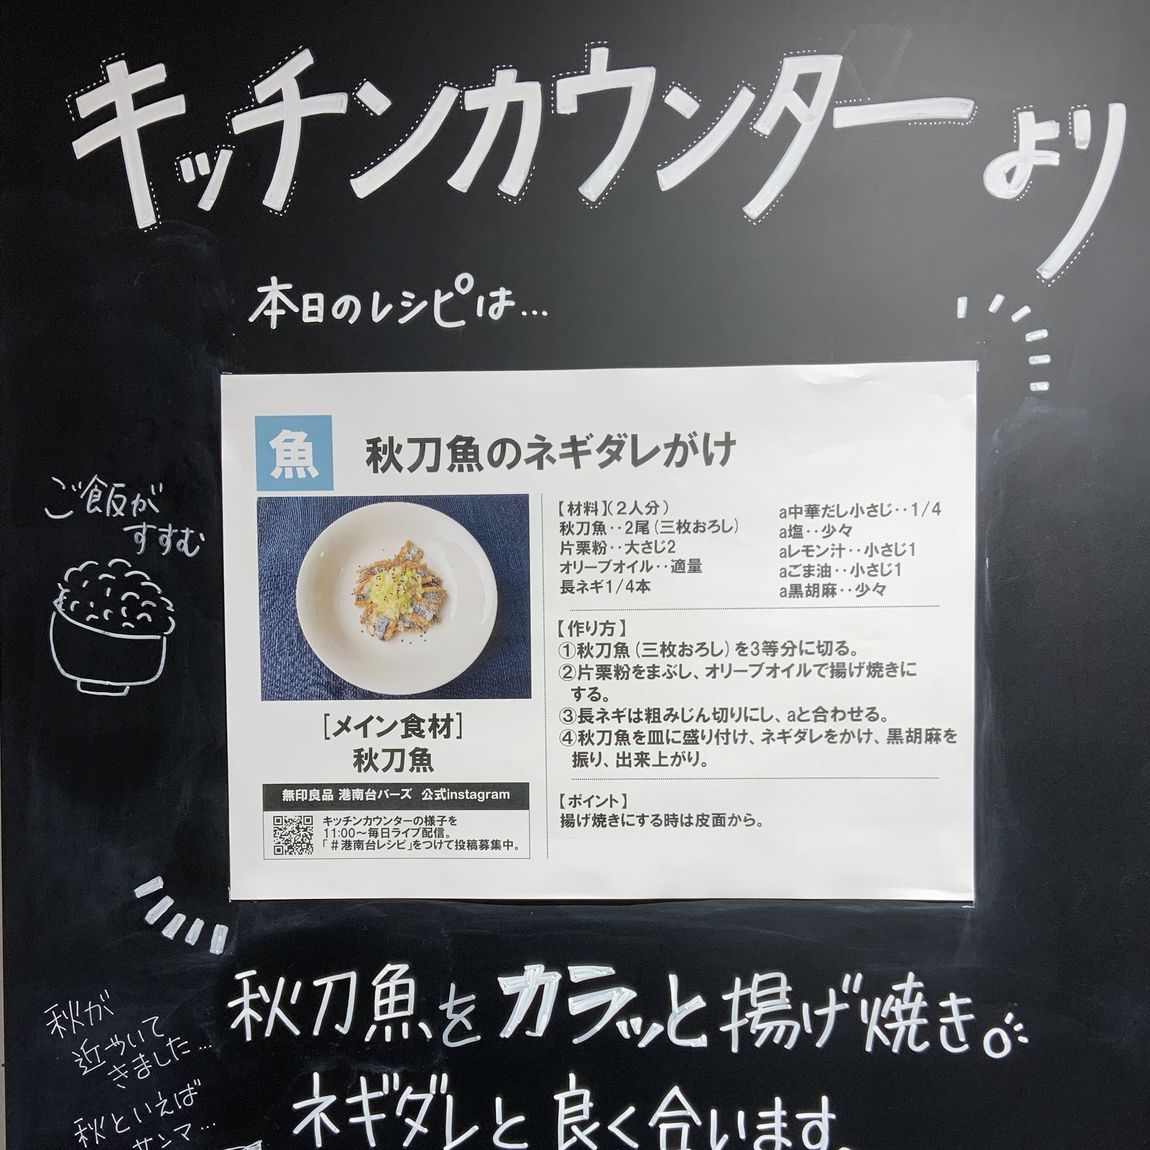 キッチンカウンターより
本日のレシピは…
魚
秋刀魚のネギダレがけ
ご飯が
すすむ
[メイン食材]
秋刀魚
無印良品 港南台バーズ 公式instagram
キッチンカウンターの様子を
11:00～毎日ライブ配信。
「＃港南台レシピ」をつけて投稿募集中。
【材料】(２人分)
秋刀魚‥2尾(三枚おろし)
片栗粉‥大さじ2
オリーブオイル‥適量
長ネギ1/4本
a中華だし小さじ‥1/4
a塩‥少々
aレモン汁‥小さじ1
aごま油‥小さじ1
a黒胡麻‥少々
【作り方】
①秋刀魚(三枚おろし)を3等分に切る。
②片栗粉をまぶし、オリーブオイルで揚げ焼きに
する。
③長ネギは粗みじん切りにし、aと合わせる。
④秋刀魚を皿に盛り付け、ネギダレをかけ、黒胡麻を
振り、出来上がり。
【ポイント】
揚げ焼きにする時は皮面から。
秋刀魚をカラッと揚げ焼き。
ネギダレと良く合います。
秋が
近づいて
きました…
秋といえば
サンマ…